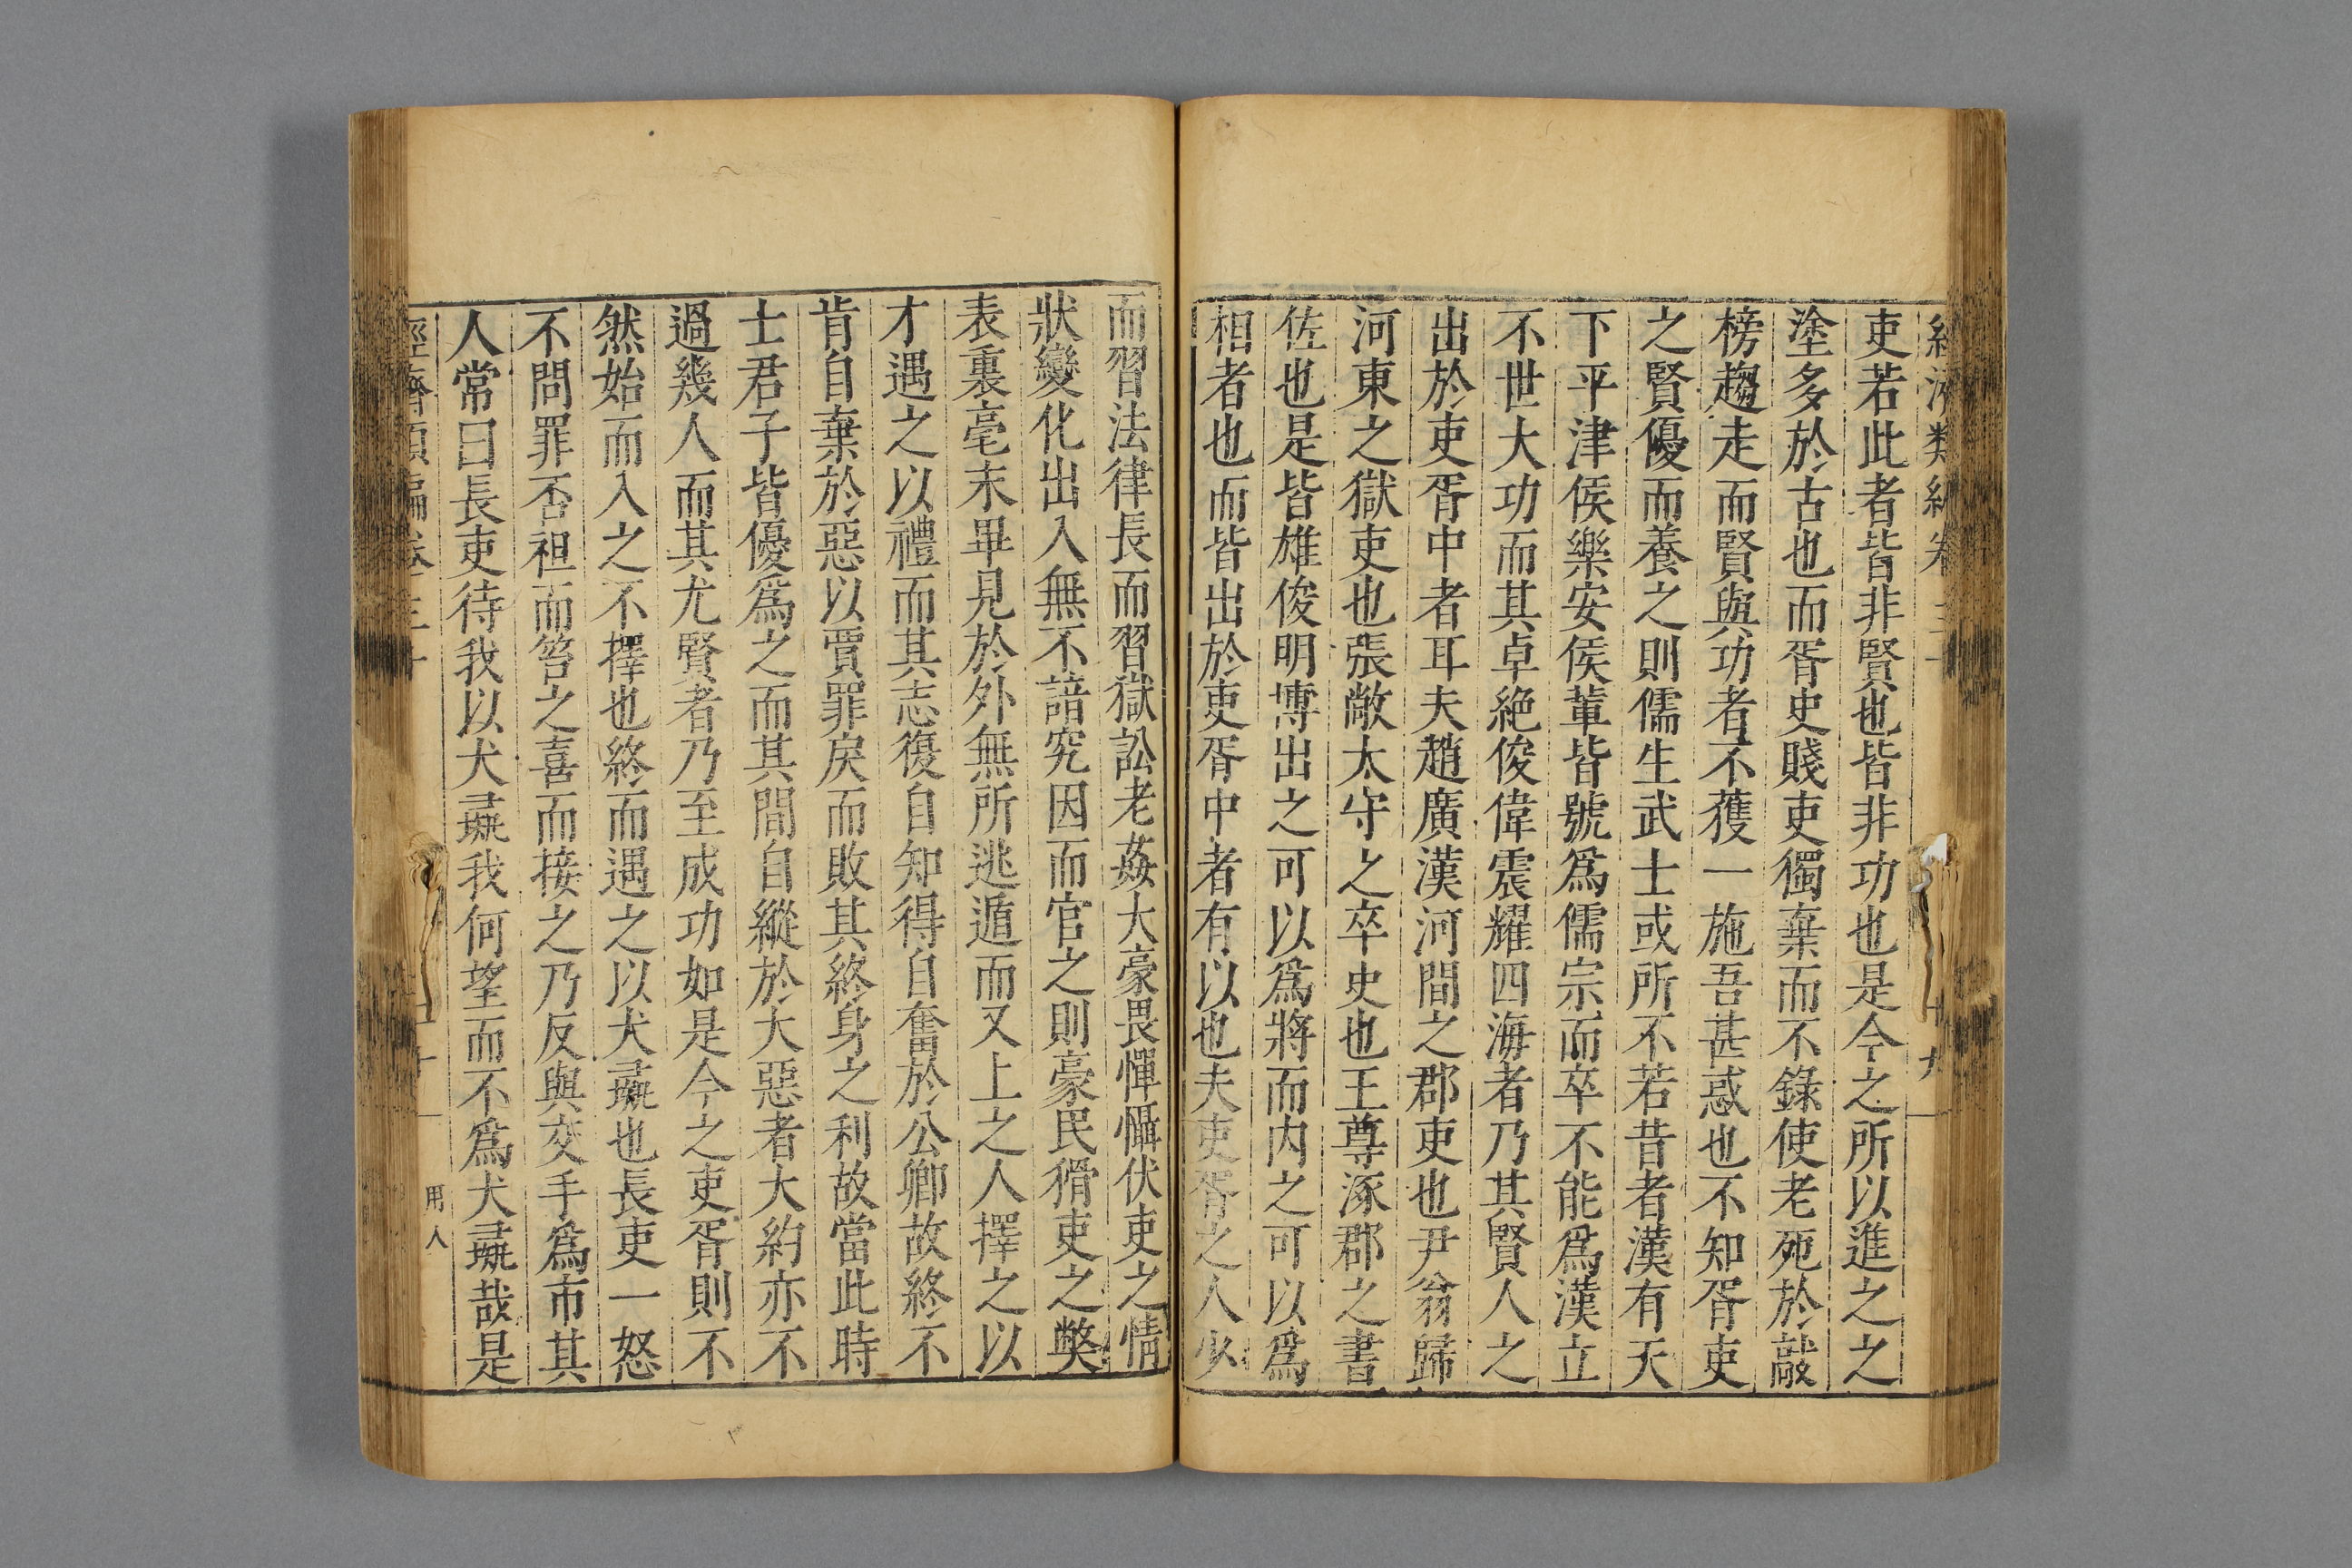 吏若此者皆非賢也皆非功也是今之所以進之之
塗多於古也而胥史賤吏獨棄而不錄使老死於敲
榜趨走而賢與功者不獲一施吾甚惑也不知胥吏
之賢優而養之則儒生武士或所不若昔者漢有天
下平津侯樂安侯輩皆號爲儒宗而卒不能爲漢立
不世大功而其卓絶俊偉震耀四海者乃其賢人之
出於吏胥中者耳夫趙廣漢河間之郡吏也尹翁歸
河東之獄吏也張敞太守之卒史也王尊涿郡之書
佐也是皆雄俊明博出之可以爲將而內之可以爲
相者也而皆出於吏胥中者有以也夫吏胥之人少
而習法律長而習獄訟老姦大豪畏憚懾伏吏之情
狀變化出入無不諳究因而官之則豪民猾吏之弊
表裏毫末畢見於外無所逃遁而又上之人擇之以
才遇之以禮而其志復自知得自奮於公卿故終不
肯自棄於惡以賈罪戾而敗其終身之利故當此時
士君子皆優爲之而其間自縱於大惡者大約亦不
過幾人而其尤賢者乃至成功如是今之吏胥則不
然始而入之不擇也終而遇之以犬彘也長吏一怒
不問罪否袒而笞之喜而接之乃反與交手爲市其
人常曰長吏待我以犬彘我何望而不爲犬彘哉是
用人